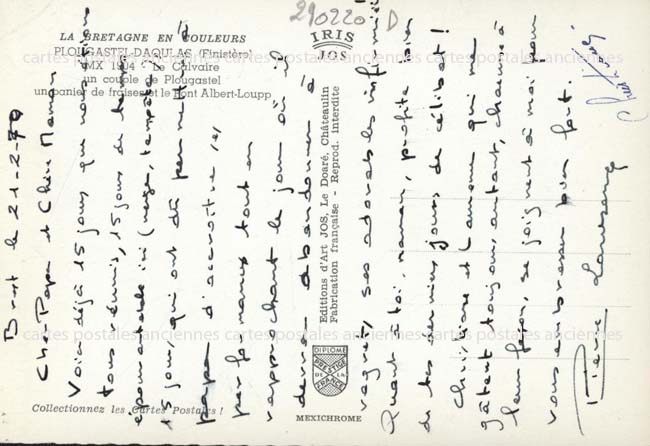 LA BRETAGNE EN COULEURS
PLOUGASTEL-DAOULAS (Finistère)
MX 1904 - Le Calvaire
un couple de Plougastel
un panier de fraises et le Pont Albert-Loupp
290220 D
IRIS
JOS
Editions d'Art JOS, Le Doaré, Châteaulin
Fabrication française - Reprod. Interdite
DIPLOME
PRESTIGE
DE LA
FRANCE
MEXICHROME
Collectionnez les Cartes Postales !
Brest le 21-2-70
Cher Papa et Chère Maman
Voici déjà 15 jours que nous étions
tous réunis, 15 jours de temps
épouvantable ici (neige, tempête)
15 jours qui ont dû permettre à
papa d'accroître ses
performances tout en
rapprochant le jour où il
devra abandonner à
regret, ses adorables infirmières
Quant à toi, maman, profite bien
de tes derniers jours de célibat !
Christiane et Laurence qui me
gâtent toujours autant, chacune à
leur façon, se joignent à moi pour
vous embrasser bien fort.
Pierre Laurence
cartes postales anciennes cartes postales anciennes cartes postales anciennes
cartes postales anciennes cartes postales anciennes cartes postales anciennes